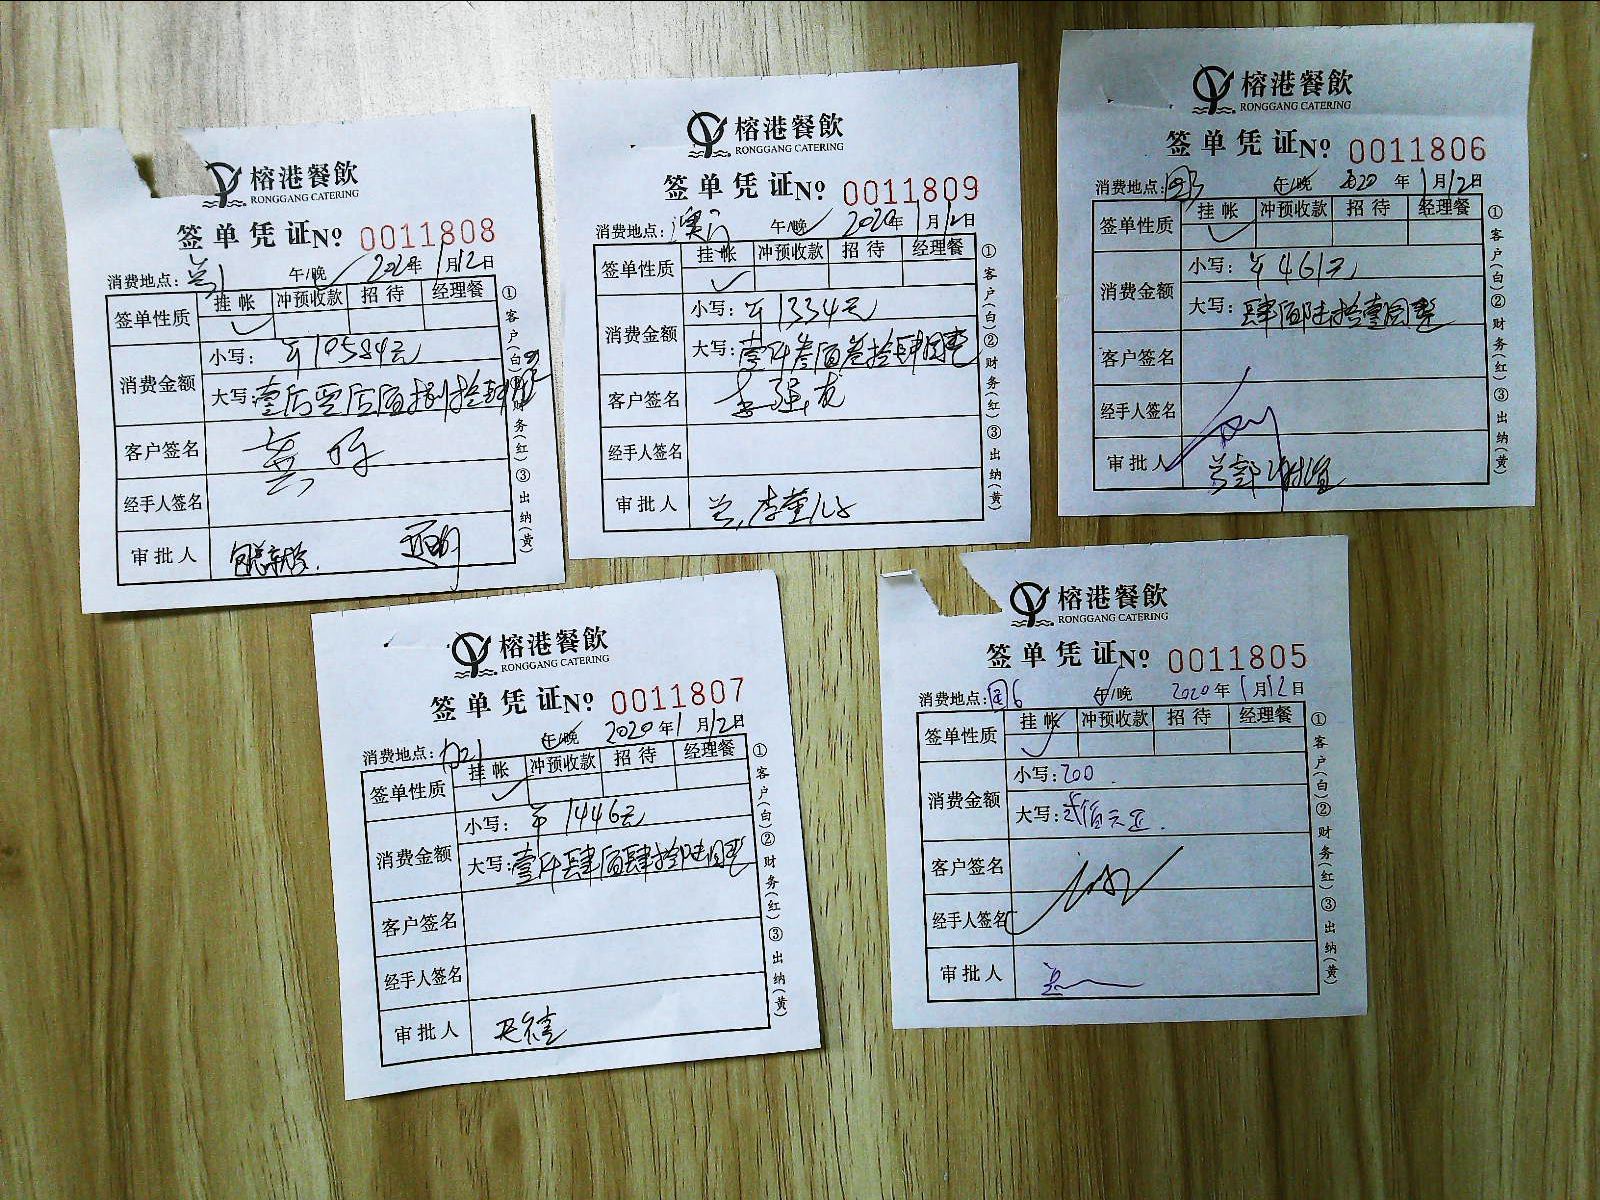 榕港餐飲
RONGGANG CATERING
签单凭证No 0011808
消费地点: 午/晚 2020年1月12日
签单性质 挂帐 冲预收款 招待 经理餐
消费金额 小写: ¥10584元
大写:
客户签名
经手人签名
审批人
①客户(白)②财务(红)③出纳(黄)
榕港餐飲
RONGGANG CATERING
签单凭证No 0011809
消费地点: 午/晚 2020年1月12日
签单性质 挂帐 冲预收款 招待 经理餐
消费金额 小写: ¥1334元
大写: 壹仟叁佰叁拾肆圆整
客户签名
经手人签名
审批人
①客户(白)②财务(红)③出纳(黄)
榕港餐飲
RONGGANG CATERING
签单凭证No 0011806
消费地点: 午/晚 2020年1月12日
签单性质 挂帐 冲预收款 招待 经理餐
消费金额 小写: ¥461元
大写: 肆佰陆拾壹圆整
客户签名
经手人签名
审批人
①客户(白)②财务(红)③出纳(黄)
榕港餐飲
RONGGANG CATERING
签单凭证No 0011807
消费地点: 午/晚 2020年1月12日
签单性质 挂帐 冲预收款 招待 经理餐
消费金额 小写: ¥1446元
大写: 壹仟肆佰肆拾陆圆整
客户签名
经手人签名
审批人
①客户(白)②财务(红)③出纳(黄)
榕港餐飲
RONGGANG CATERING
签单凭证No 0011805
消费地点: 国6 午/晚 2020年1月12日
签单性质 挂帐 冲预收款 招待 经理餐
消费金额 小写: 200
大写: 贰佰元正
客户签名
经手人签名
审批人
①客户(白)②财务(红)③出纳(黄)